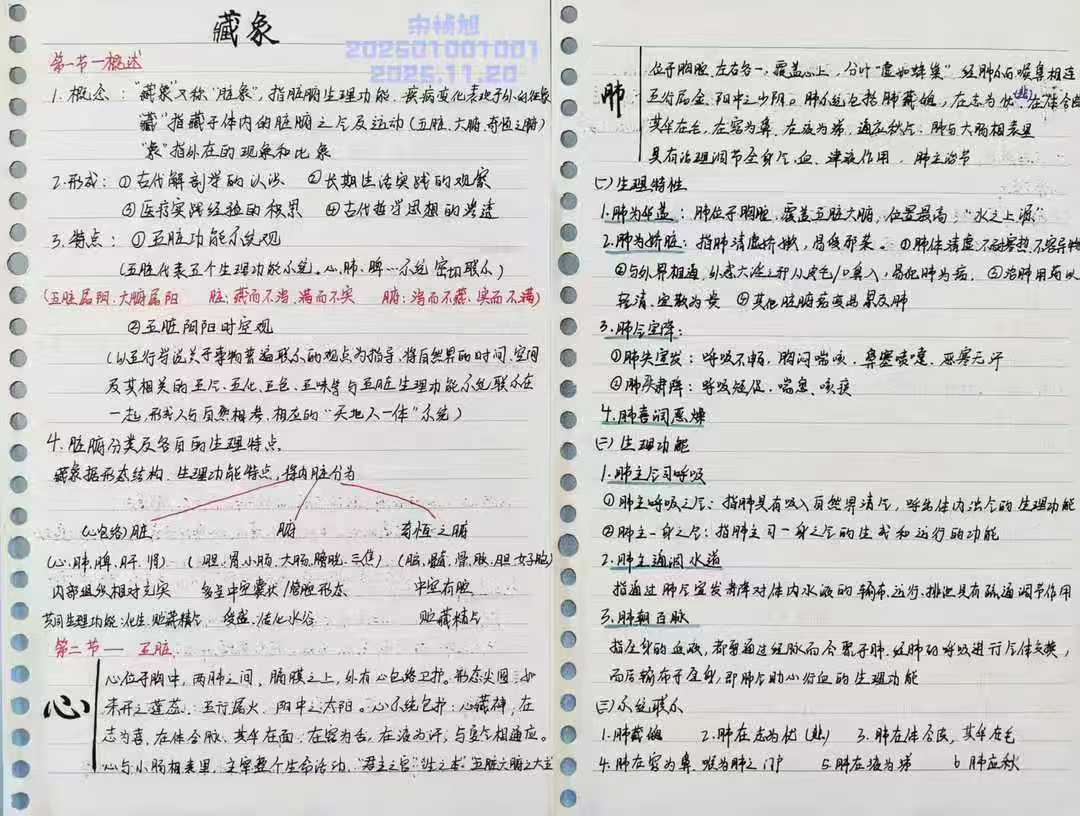 藏象
宋祯旭
202501001001
2025.11.20
第一节一概述
1. 概念："藏象"又称"脏象"，指脏腑生理功能、疾病变化表现于外的征象
"藏"指藏于体内的脏腑之气及运动(五脏、六腑、奇恒之腑)
"象"指外在的现象和比象
2.形成：①古代解剖学的认识 ②长期生活实践的观察
③医疗实践经验的积累 ④古代哲学思想的渗透
3. 特点：①五脏功能系统观
(五脏代表五个生理功能系统。心、肺、脾…系统密切联系)
(五脏属阴、六腑属阳 脏：藏而不泻、满而不实 腑：泻而不藏、实而不满)
②五脏阴阳时空观
(以五行学说关于事物普遍联系的观点为指导，将自然界的时间、空间
及其相关的五气、五化、五色、五味等与五脏生理功能系统联系在
一起，形成人与自然相参、相应的"天地人一体"系统)
4. 脏腑分类及各自的生理特点
藏象据形态结构、生理功能特点，将内脏分为
(心包络)脏 腑 奇恒之腑
(心、肺、脾、肝、肾) (胆、胃、小肠、大肠、膀胱、三焦) (脑、髓、骨、脉、胆、女子胞)
内部组织相对充实 多呈中空囊状/管腔形态 中空有腔
共同生理功能：化生、贮藏精气 受盛、传化水谷 贮藏精气
第二节 — 五脏
心
心位于胸中，两肺之间，膈膜之上，外有心包络卫护。形态尖圆，如
未开之莲蕊。五行属火，阴中之太阳。心系统包括：心藏神，在
志为喜，在体合脉、其华在面，在窍为舌，在液为汗，与夏气相通应。
心与小肠相表里，主宰整个生命活动，"君主之官""生之本""五脏六腑之大主"
肺
位于胸腔，左右各一，覆盖心上，分叶"虚如蜂巢"经肺系与喉鼻相连
五行属金，阳中之少阴。肺系统包括肺藏魄，在志为忧(悲)，在体合皮
其华在毛，在窍为鼻，在液为涕，通应秋气。肺与大肠相表里
具有治理调节全身气、血、津液作用，肺主治节
(一)生理特性
1.肺为华盖：肺位于胸腔，覆盖五脏六腑，位置最高："水之上源"
2.肺为娇脏：指肺清虚娇嫩，易受邪袭。①肺体清虚不耐寒热，不容异物
②与外界相通，外感六淫之邪从皮毛/口鼻入，易犯肺为病。③治肺用药以
轻清、宣散为贵 ④其他脏腑病变易累及肺
3.肺气宣降：
①肺失宣发：呼吸不畅，胸闷喘咳，鼻塞喷嚏，恶寒无汗
②肺失肃降：呼吸短促，喘息，咳痰
4.肺喜润恶燥
(二)生理功能
1.肺主气司呼吸
①肺主呼吸之气：指肺具有吸入自然界清气，呼出体内浊气的生理功能
②肺主一身之气：指肺主司一身之气的生成和运行的功能
2.肺主通调水道
指通过肺气宣发肃降对体内水液的输布、运行、排泄具有疏通调节作用
3.肺朝百脉
指全身的血液，都要通过经脉而会聚于肺，经肺的呼吸进行气体交换，
而后输布于全身，即肺气助心行血的生理功能
(三)系统联系
1.肺藏魄 2.肺在志为忧(悲) 3.肺在体合皮，其华在毛
4.肺在窍为鼻，喉为肺之门户 5.肺在液为涕 6 肺应秋